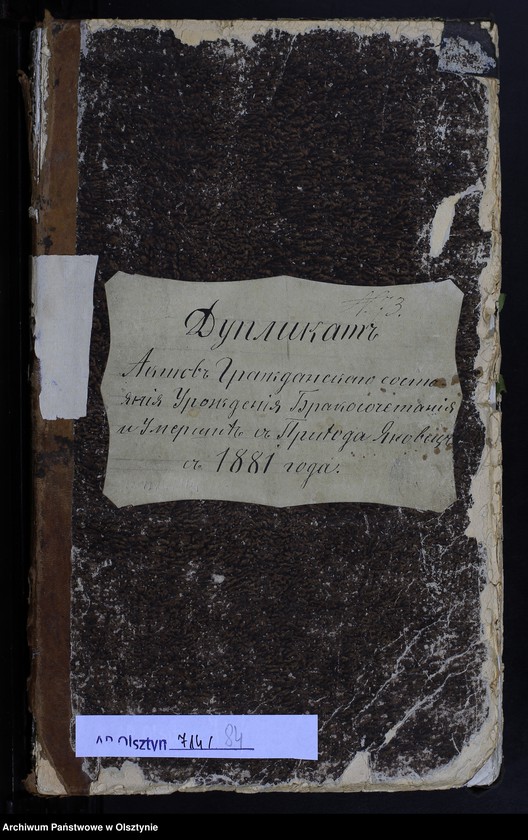 N. 73.
Дупликатъ
Актовъ Гражданскаго состо-
янія Урожденія Бракосочетанія
и Умершихъ съ Прихода
съ 1881 года.
AP Olsztyn 714/ 84
Archiwum Państwowe w Olsztynie